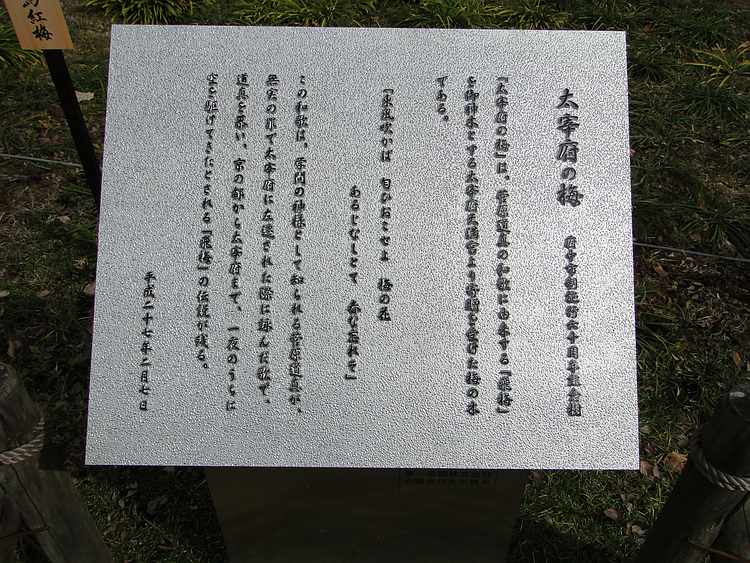 太宰府の梅
府中市制施行六十周年記念樹
「太宰府の梅」は、菅原道真の和歌に由来する「飛梅」
を御神木とする太宰府天満宮より寄贈を受けた梅の木
である。
「東風吹かば 匂ひおこせよ 梅の花
あるじなしとて 春な忘れそ」
この和歌は、学問の神様として知られる菅原道真が、
無実の罪で太宰府に左遷された際に詠んだ歌で、
道真を慕い、京の都から太宰府まで、一夜のうちに
空を駆けてきたとされる「飛梅」の伝説が残る。
平成二十七年二月七日
紅梅